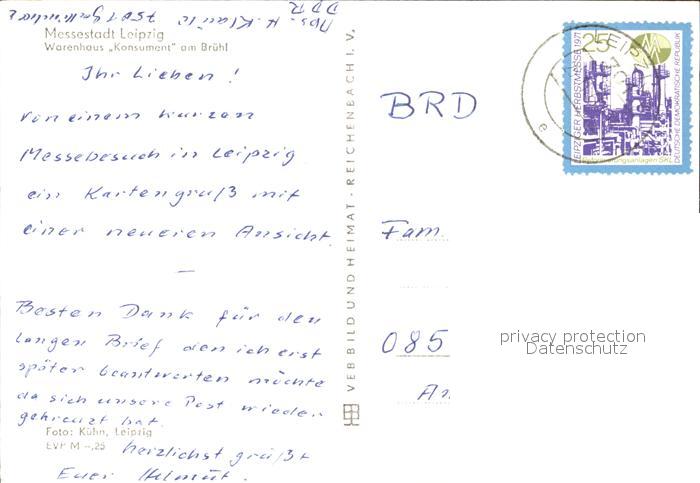 Abs. H. Klaue 7501
DDR
Messestadt Leipzig
Warenhaus „Konsument“ am Brühl
Ihr Lieben!
von einem kurzen
Messebesuch in Leipzig
ein Kartengruß mit
einer neueren Ansicht.
—
Besten Dank für den
langen Brief den ich erst
später beantworten möchte
da sich unsere Post wieder
gekreuzt hat.
Foto: Kühn, Leipzig
EVP M –,25
herzlichst grüßt
Euer Helmut.
VEB BILD UND HEIMAT · REICHENBACH I. V.
BRD
Fam.
085
LEIPZIGER HERBSTMESSE 1971
25
DEUTSCHE DEMOKRATISCHE REPUBLIK
SKL
e
privacy protection
Datenschutz